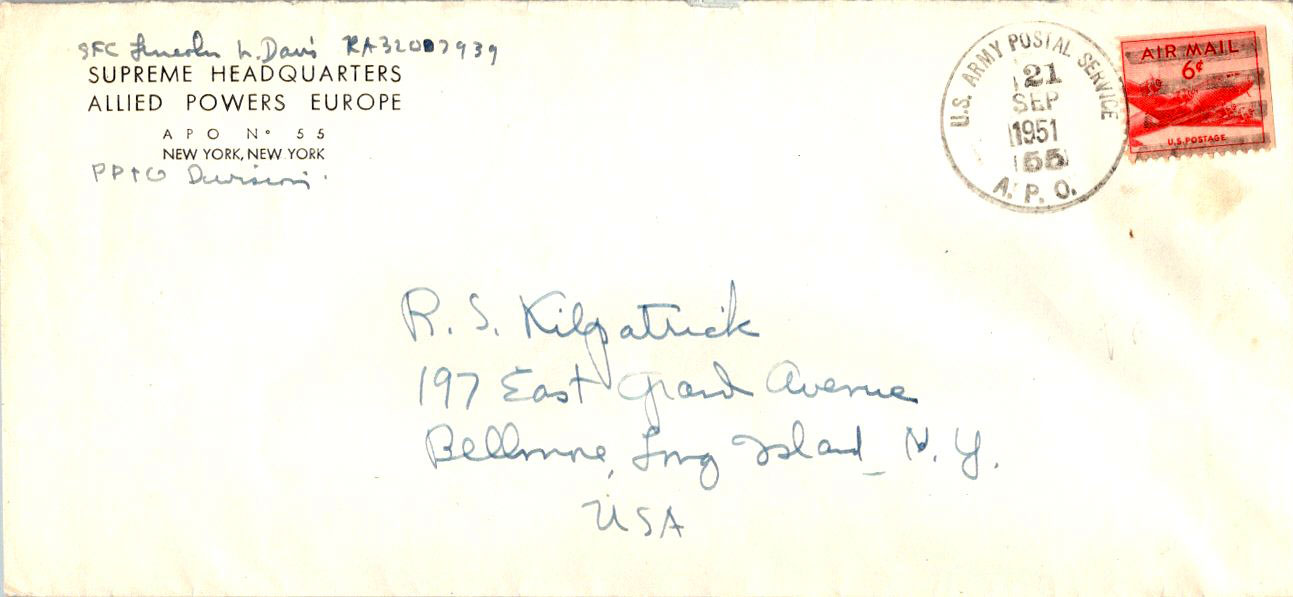 SFC Lincoln L. Davis RA32007939
SUPREME HEADQUARTERS
ALLIED POWERS EUROPE
APO No 55
NEW YORK, NEW YORK
PP+O Division
U.S. ARMY POSTAL SERVICE
21
SEP
1951
55
A. P. O.
AIR MAIL
6¢
U.S. POSTAGE
R. S. Kilpatrick
197 East Grand Avenue
Bellmore, Long Island, N. Y.
USA